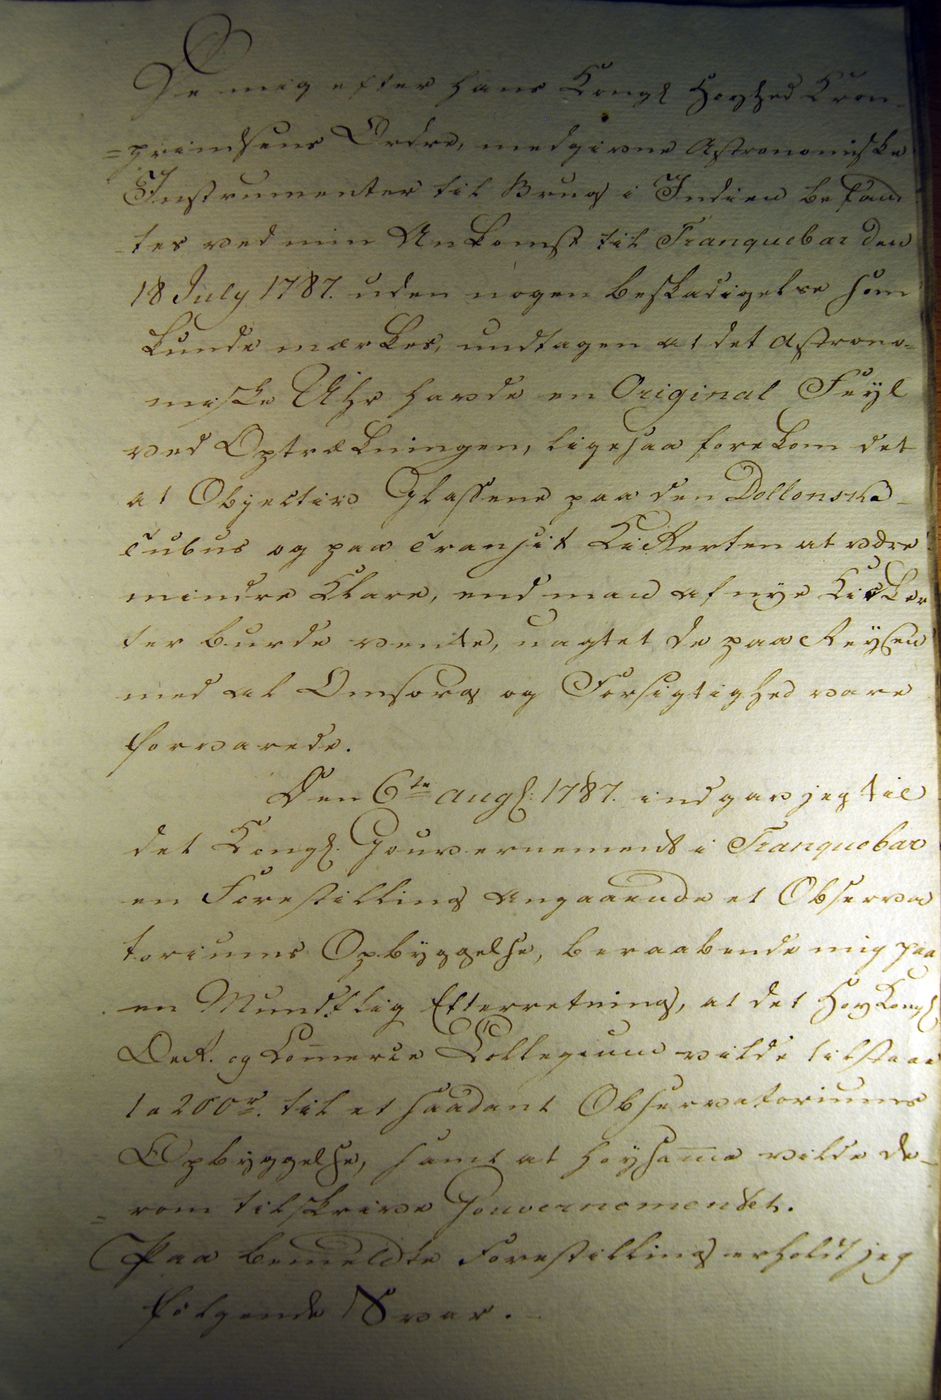 De mig efter hans Kongl Hoyhed Kron-
=prindsens Ordre, medgivne Astronomiske
Instrumenter til Brug i Indien befand
-tes ved min Ankomst til Tranquebar den
18 July 1787. uden nogen beskadigelse som
kunde mærkes, undtagen at det Astrono=
miske Uhr havde en Original Feyl
ved Optrækningen, ligesaa forekom det
at Objectiv Glassene paa den Dollonske
Tubus og paa Transit Kikkerten at være
mindre Klare, end man af nye Kikker
ter burde vente, uagtet de paa Reysen
med al Omsorg og Forsigtighed vare
forvarede.
Den 6te Augs. 1787. indgav jeg til
det Kongl. Gouvernement i Tranquebar
en Forestilling Angaaende et Observa
toriums Opbyggelse, beraabende mig paa
en Mundtlig Efterretning, at det Høy Kongl
Oect. og Commerce Collegium vilde tilstaae
1 a 200 r. til et saadant Observatoriums
Opbyggelse, samt at høysamme vilde de-
=rom tilskrive Gouvernementet.
Paa bemeldte Forestilling erholdt jeg
følgende Svar.